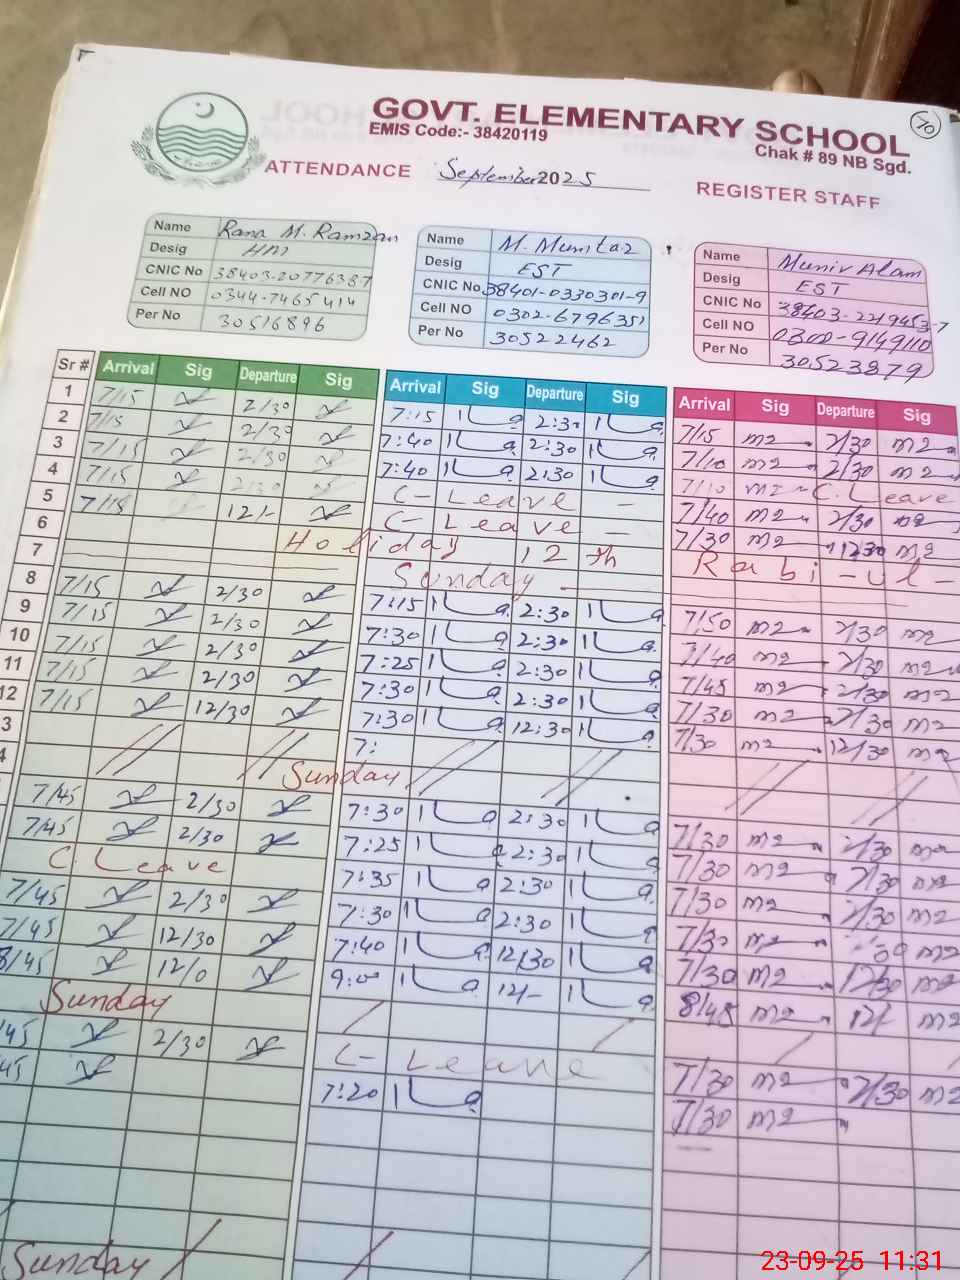 GOVT. ELEMENTARY SCHOOL
70
EMIS Code:- 38420119
Chak # 89 NB Sgd.
ATTENDANCE September 2025 REGISTER STAFF
Name Rana M. Ramzan
Desig HM
CNIC No 38403-20776387
Cell NO 0344-7465414
Per No 30516896
Name M. Mumtaz
Desig EST
CNIC No 38401-0330301-9
Cell NO 0302-6796351
Per No 30522462
Name Munir Alam
Desig EST
CNIC No 38403-2219453-7
Cell NO 0300-9149110
Per No 30523879
Sr # Arrival Sig Departure Sig Arrival Sig Departure Sig Arrival Sig Departure Sig
1 7/15 2/30 7:15 2:30 7/15 2/30
2 7/15 2/30 7:40 2:30 7/10 2/30
3 7/15 2/30 7:40 2:30 7/10 C. Leave
4 7/15 2/30 C- Leave - 7/40 2/30
5 7/15 12/- C- Leave - 7/30 1230
6 Holiday 12 th Rabi-ul-
7 Sunday
8 7/15 2/30 7:15 2:30 7/50 2/30
9 7/15 2/30 7:30 2:30 7/40 2/30
10 7/15 2/30 7:25 2:30 7/45 2/30
11 7/15 2/30 7:30 2:30 7/30 2/30
12 7/15 12/30 7:30 12:30 7/30 12/30
3 7:
4 Sunday
7/45 2/30 7:30 2:30 7/30 2/30
7/45 2/30 7:25 2:30 7/30 2/30
C. Leave 7:35 2:30 7/30 2/30
7/45 2/30 7:30 2:30 7/30
7/45 12/30 7:40 12/30 7/30 12/30
8/45 12/0 9:00 12/- 8/45 12/
Sunday
45 2/30 C- Leave 7/30 2/30
45 7:20 7/30
Sunday
23-09-25 11:31